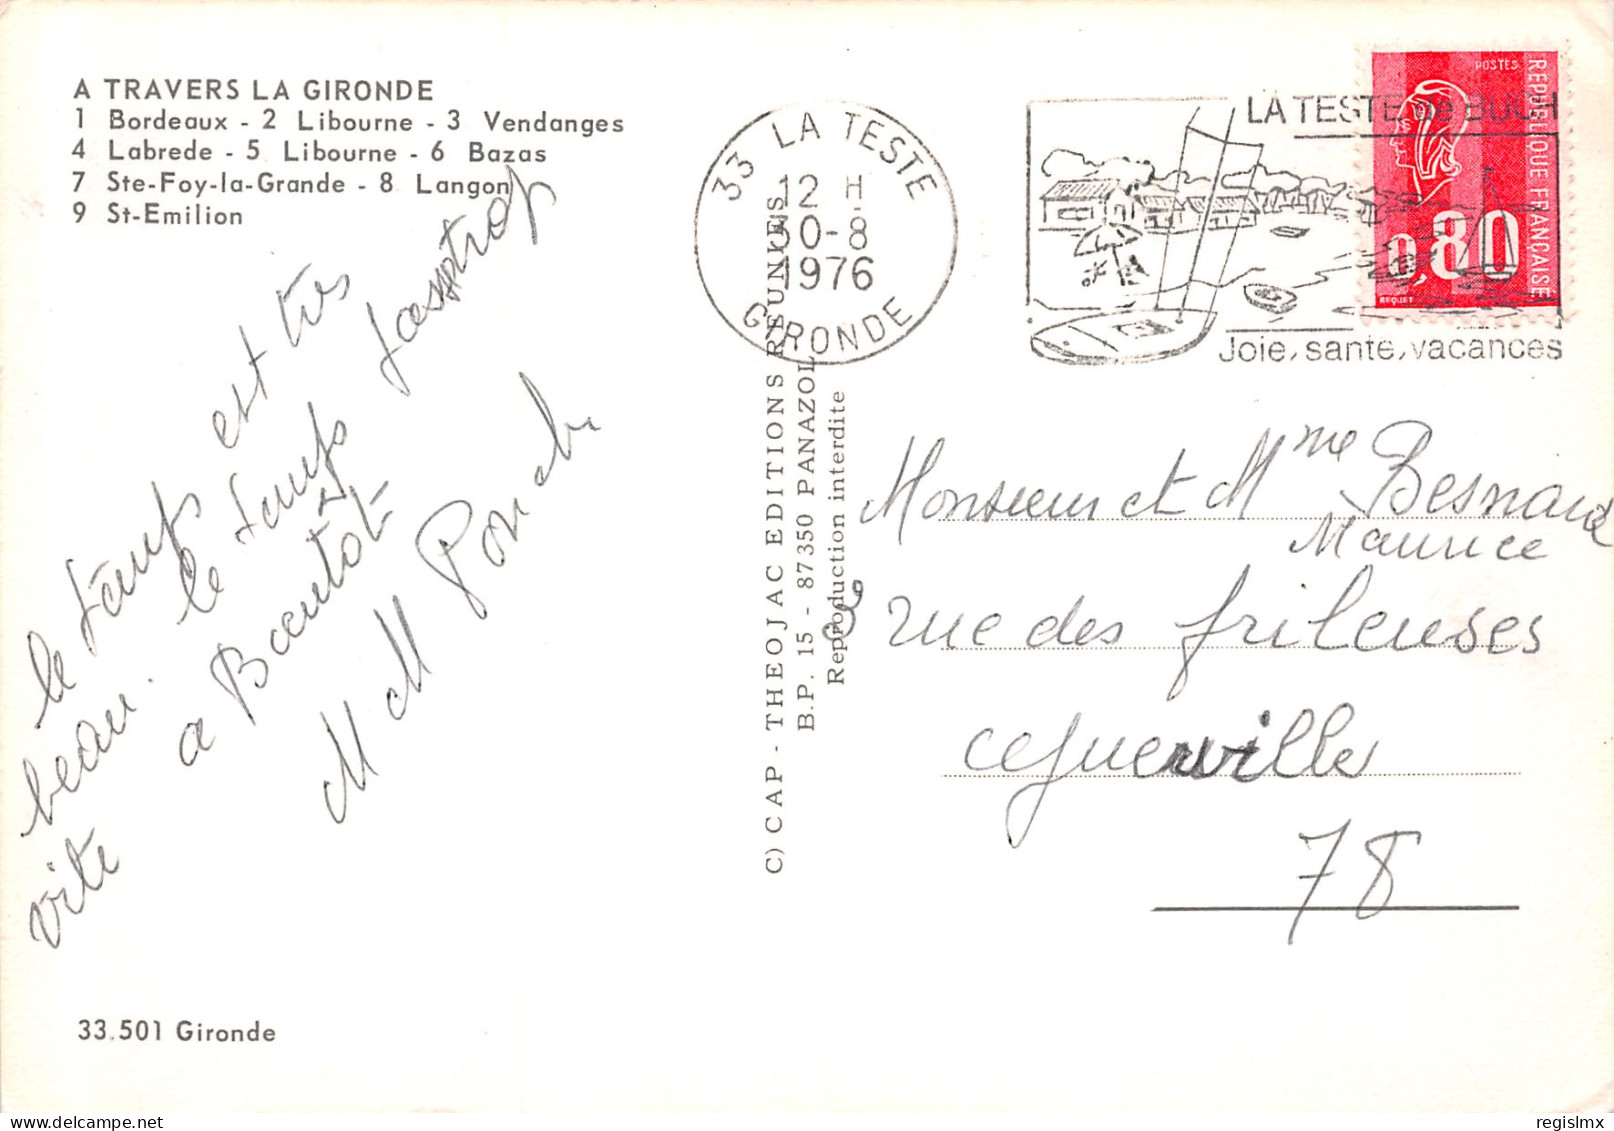 A TRAVERS LA GIRONDE
1 Bordeaux - 2 Libourne - 3 Vendanges
4 Labrede - 5 Libourne - 6 Bazas
7 Ste-Foy-la-Grande - 8 Langon
9 St-Emilion
le temps est très
beau. le temps passe trop
vite a Bientôt
M M
33.501 Gironde
C) CAP - THEOJAC EDITIONS REUNIES
B.P. 15 - 87350 PANAZOL
Reproduction interdite
33 LA TESTE
12 H
30-8
1976
GIRONDE
LA TESTE de BUCH
Joie, santé, vacances
POSTES
REPUBLIQUE FRANÇAISE
0,80
BEQUET
Monsieur et Mme Besnard
Maurice
rue des frileuses
78
regislmx